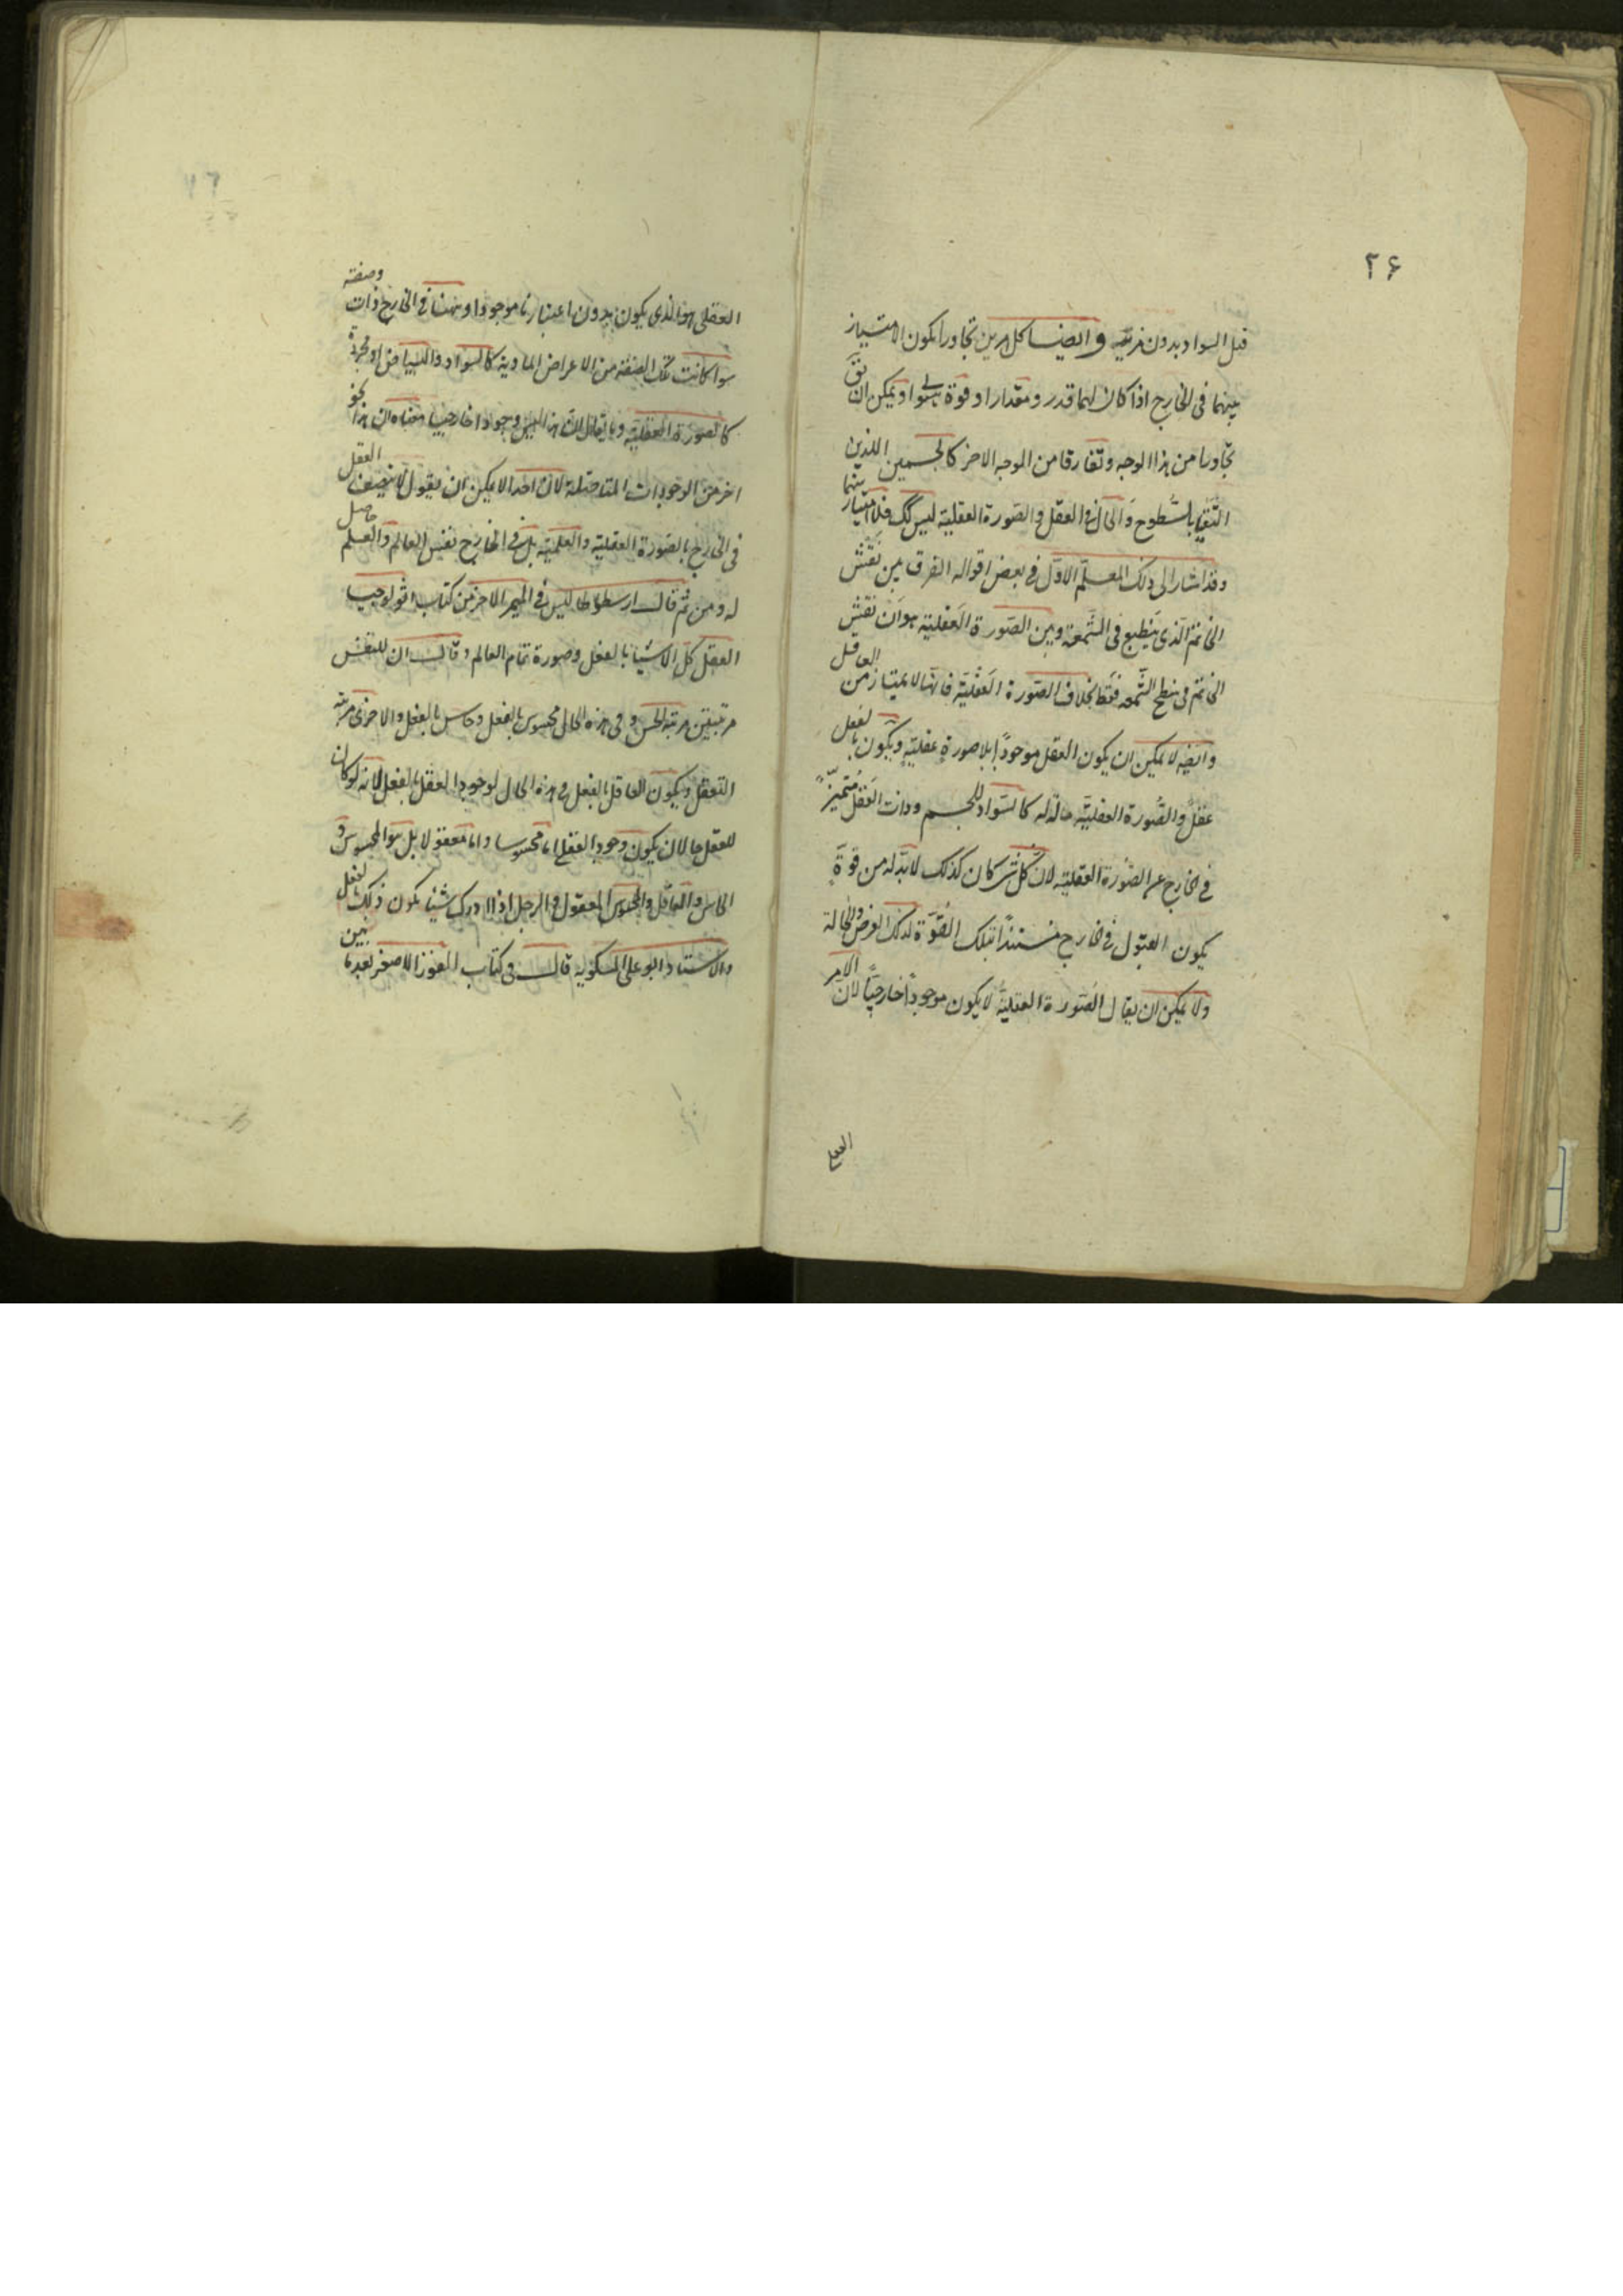 ۲۶
قبل السواد بدون مزیّته و ایضا کل امرین تجاورا یکون الامتیاز
بینهما فی الخارج اذا کان لهما قدر و مقدار او قوة هیولی او یمکن ان
تجاورا من هذا الوجه و تفارقا من الوجه الاخر کالجسمین اللذین
التقیا بالسّطوح وَالحال فی العقل و الصّورة العقلیة لیس کک فلا امتیاز بینهما
و قد اشار الی ذلک المعلّم الاوّل فی بعض اقواله الفرق بین نَقش
الخاتم الّذی ینطبع فی الشَّمعة و بین الصّورة العَقلیة هو انّ نقش
الخاتم فی سطح الشَّمعه فقط بخلاف الصّورة العَقْلیّة فانّها لا یمتاز من العاقل
و ایضه لا یمکن ان یکون العقل موجوداً بلا صورة عقلیّة و یکون بالفعل
عقلً و الصُّورة العقلیّه حالّة له کالسَّواد للجسم و ذات العَقل مُتمیّزً
فی الخارج عن الصُّورة العقلیّه لانّ کُلّ شی کان کذلک لا بدّ له من قوّة
یکون القبول فی الخارج مستنداً بتلک القُوّة لذلک العرض و الحالة
و لا یمکن ان یقال الصّورة العقلیّة لا یکون موجوداً خارجیّاً لانّ الامر
العقلی
العقلی هو الذی یکون بدون اعتبارنا موجودا و ههنا فی الخارج ذات و صفته
سوا کانت تلک الصفة من الاعراض المادیة کالسواد و البیاض او مجردة
کالصورة العقلیّة و ما یقال انّ هذا لیس وجودا خارجیا معناه ان هذا نحو
اخر من الوجودات المتاصلة لانّ احدا لا یمکن ان یقول لا یتصف العقل
فی الخارج بالصّورة العقلیة و العلمیّه بل فی الخارج نفس العالم و العلم حاصل
له و من ثُمّ قال ارسطاطالیس فی المیمر الاخر من کتاب اثولوجیا
العقل کلّ الاشیا بالفعل و صورة تمام العالم و قال ان للنفس
مرتبتین مرتبة الحس و فی هذه الحال محسوس بالفعل و حاس بالفعل و الاخری مرتبة
التعقل و یکون العاقل بالفعل فی هذه الحال لوجود العقل بالفعل لانه لو کان
للعقل حالان یکون وجود العقل اما محسوسا و اما معقولا بل هو المحسوس و
الحاس و العاقل و المحسوس المعقول و الرجل اذا ادرک شیئا یکون ذلک بالفعل
و الاستاد ابو علی المسکویه قال فی کتاب الفوز الاصغر بعد ما بین